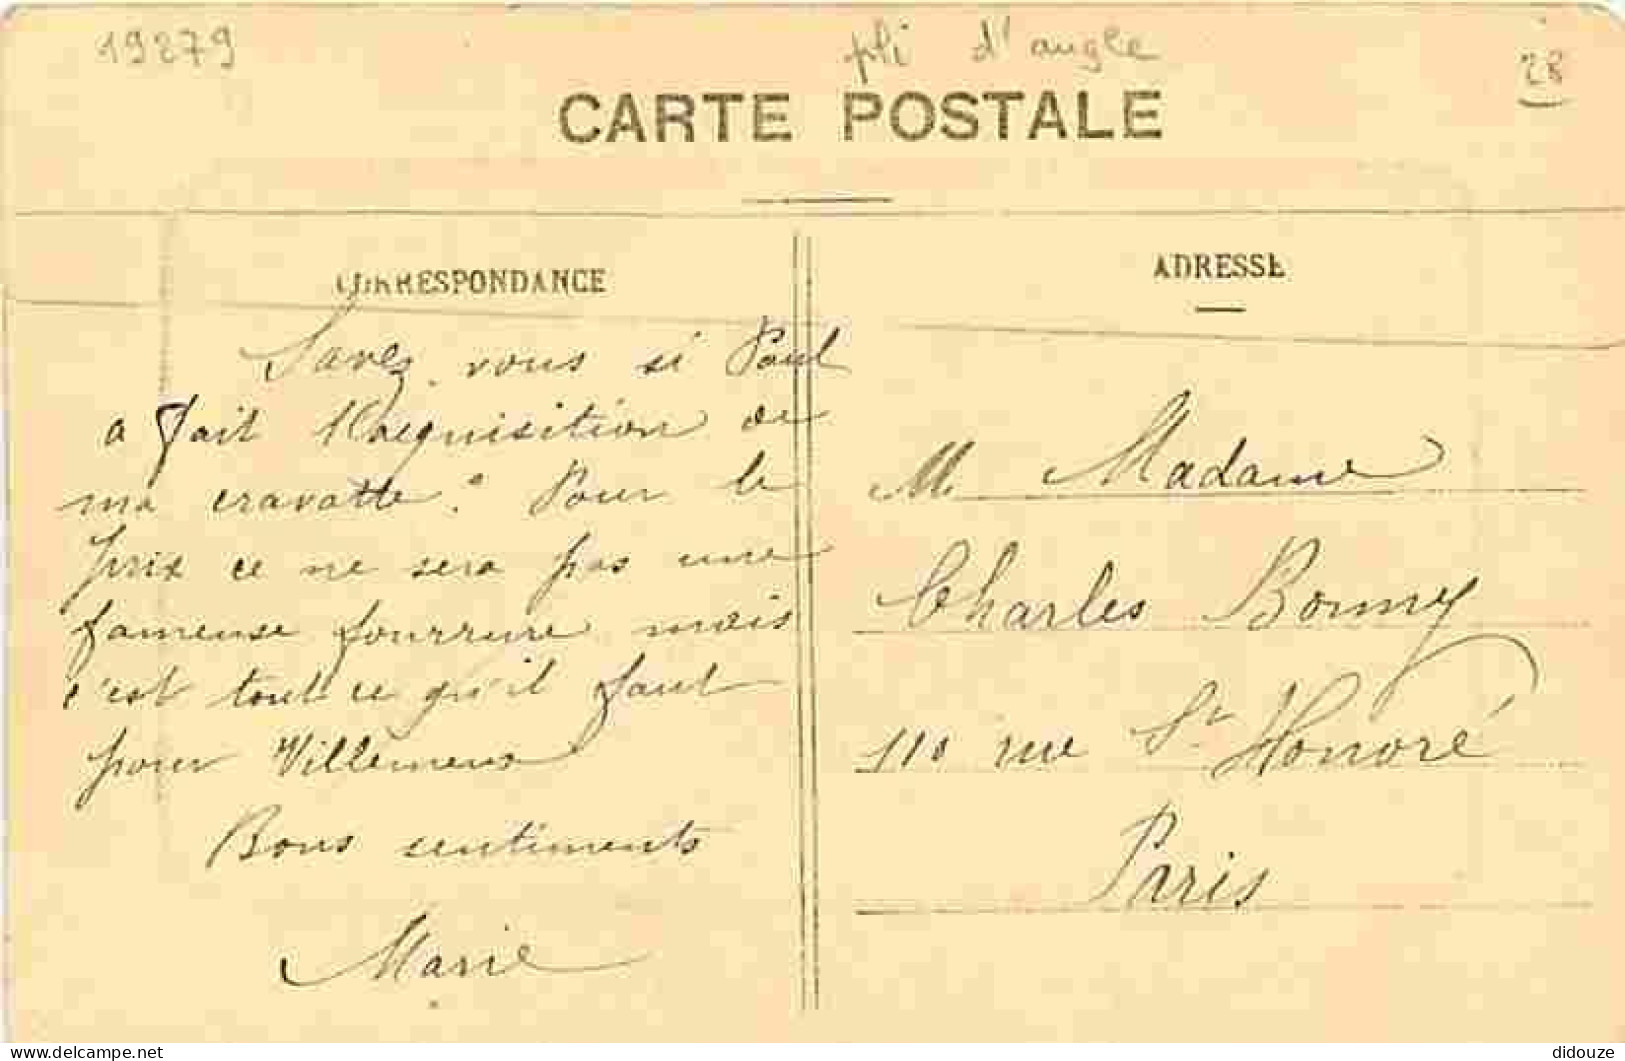 19279
pli d'angle
28
CARTE POSTALE
CORRESPONDANCE
ADRESSE
Savez vous si Paul
a fait l'acquisition de
ma cravatte? Pour le
prix ce ne sera pas une
fameuse fourrure mais
c'est tout ce qu'il faut
pour Villemeux
Bons sentiments
Marie
M. Madame
Charles Bonny
110 rue St Honoré
Paris
delcampe.net
didouze